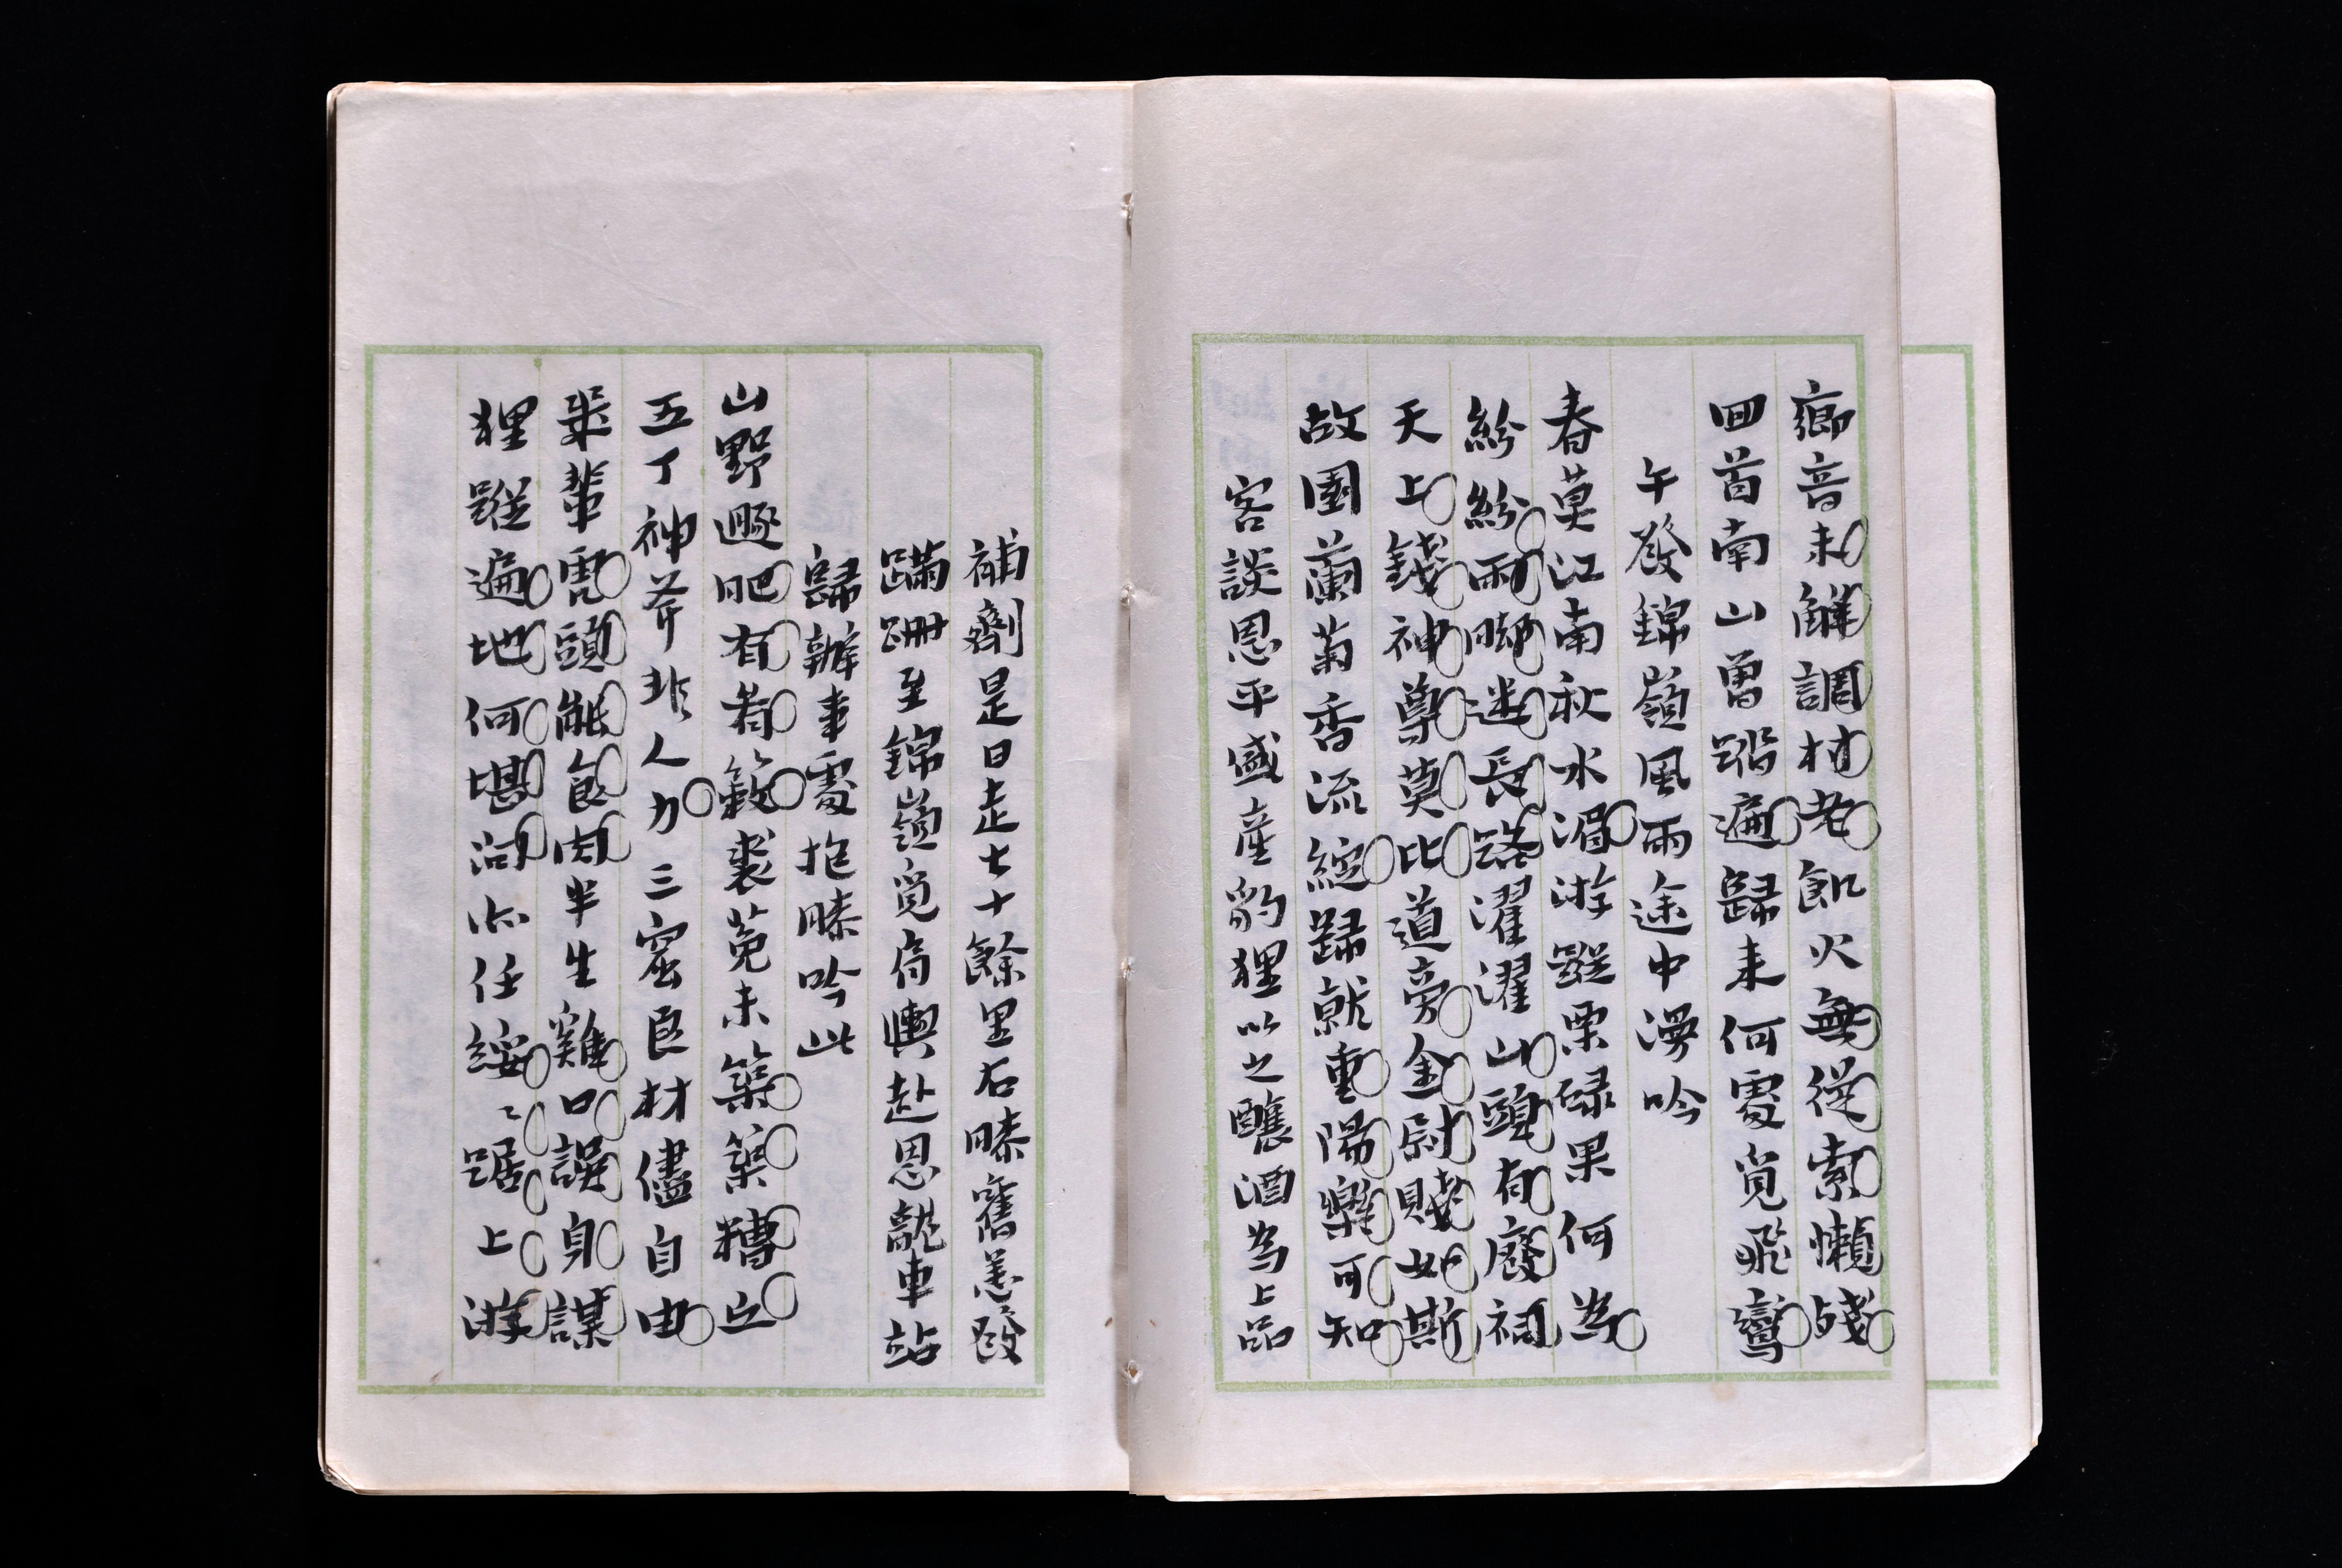 鄉音未解調村老飢火無從索懶殘
回首南山曾踏遍歸來何處覓飛鸞
午發錦嶺風雨途中漫吟
春莫江南秋水湄游蹤栗碌果何為
紛紛雨腳迷長路濯濯山頭有廢祠
天上錢神尊莫比道旁金尉賤如斯
故園蘭菊香流綻歸就重陽樂可知
客談恩平盛產豹狸以之釀酒為上品
補劑是日走七十餘里右膝舊恙發
蹣跚至錦嶺覓肩輿赴恩龍車站
歸辦事處抱膝吟此
山野遯肥有着籔裘菟未築築糟丘
五丁神斧非人力三窟良材儘自由
柴輩雋頭能飽肉半生雞口誤身謀
狸蹤遍地何堪問心任綏〻踞上游